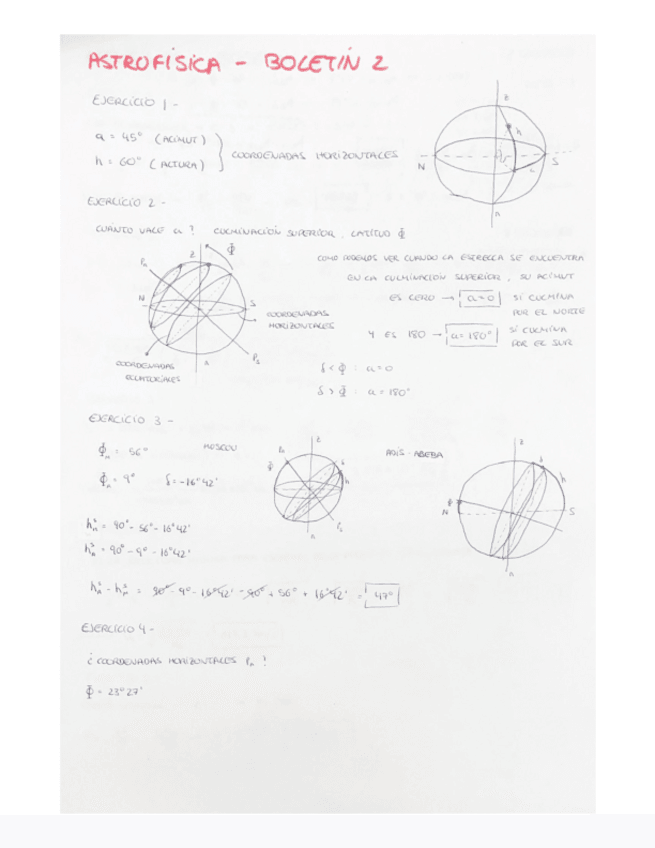 ASTROFÍSICA - BOLETÍN 2
EJERCICIO 1 -
a = 45° (ACIMUT)
h = 60° (ALTURA)
COORDENADAS HORIZONTALES
z
h
N
S
n
EJERCICIO 2 -
CUÁNTO VALE a? CULMINACIÓN SUPERIOR. LATITUD Φ
Pn
z
Φ
N
S
COORDENADAS
HORIZONTALES
COORDENADAS
ECUATORIALES
n
Ps
COMO PODEMOS VER CUANDO LA ESTRELLA SE ENCUENTRA
EN LA CULMINACIÓN SUPERIOR, SU ACIMUT
ES CERO → a=0 SI CULMINA
POR EL NORTE
Y ES 180 → a=180° SI CULMINA
POR EL SUR
δ < Φ : a=0
δ > Φ : a=180°
EJERCICIO 3 -
Φm = 56° MOSCOU
Φa = 9° δ=-16°42'
Pn
z
Φ
h
Ps
n
ADÍS-ABEBA
z
h
Φ
N
S
n
hm = 90° - 56° - 16°42'
ha = 90° - 9° - 16°42'
ha - hm = 90° - 9° - 16°42' - 90° + 56° + 16°42' = 47°
EJERCICIO 4 -
¿ COORDENADAS HORIZONTALES Pn ?
Φ = 23°27'